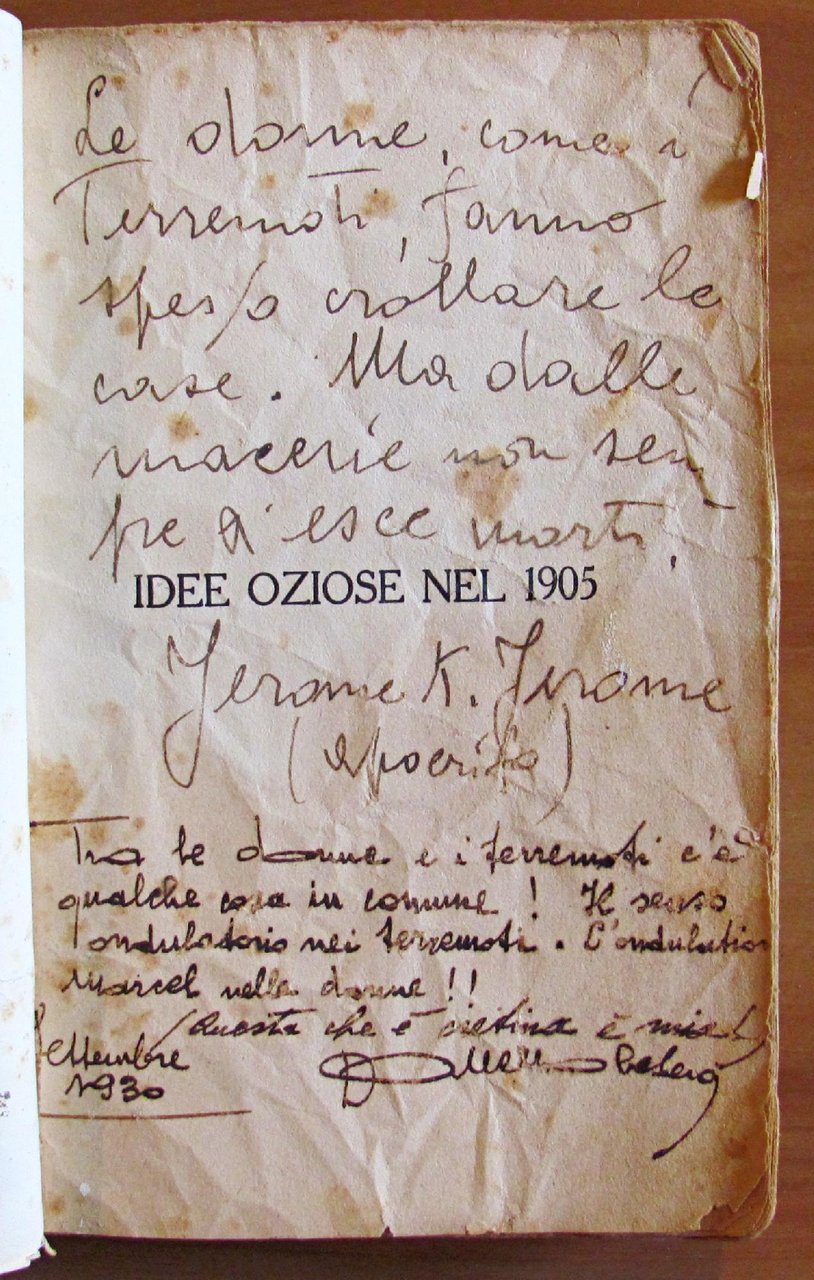 Le donne, come i
Terremoti, fanno
spesso crollare le
case. Ma dalle
macerie non sem
pre s'esce morti.
IDEE OZIOSE NEL 1905
Jerome K. Jerome
(apocrifo)
Tra le donne e i terremoti c'è
qualche cosa in comune! Il senso
ondulatorio nei terremoti. L'ondulation
Marcel nelle donne!!
(Questa che è cretina è mia)
Settembre
1930